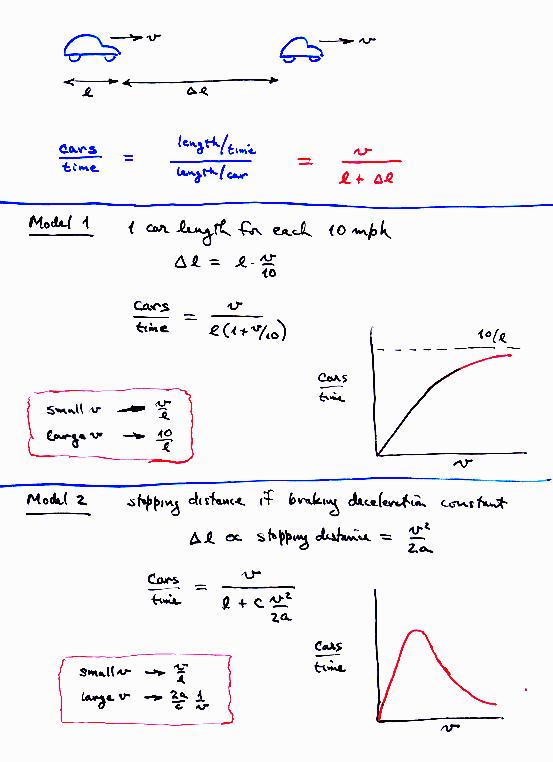 → v → v
l Δl
cars/time = length/time / length/car = v / l + Δl
Model 1 1 car length for each 10 mph
Δl = l · v/10
cars/time = v / l(1+v/10)
10/l
cars/time
v
small v → v/l
large v → 10/l
Model 2 stopping distance if braking deceleration constant
Δl ∝ stopping distance = v²/2a
cars/time = v / l + c v²/2a
cars/time
v
small v → v/l
large v → 2a/c 1/v